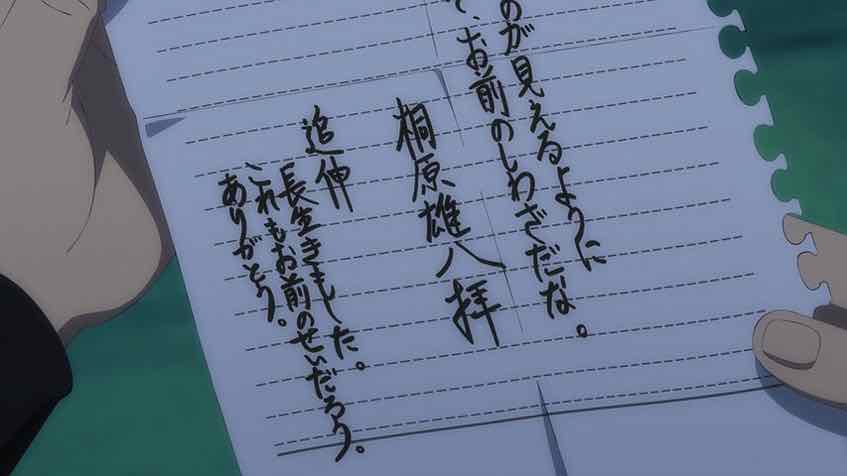 のが見えるように
、お前のしわざだな。
桐原雄八 拝
追伸
長生きました。
これもお前のせいだろう。
ありがとう。